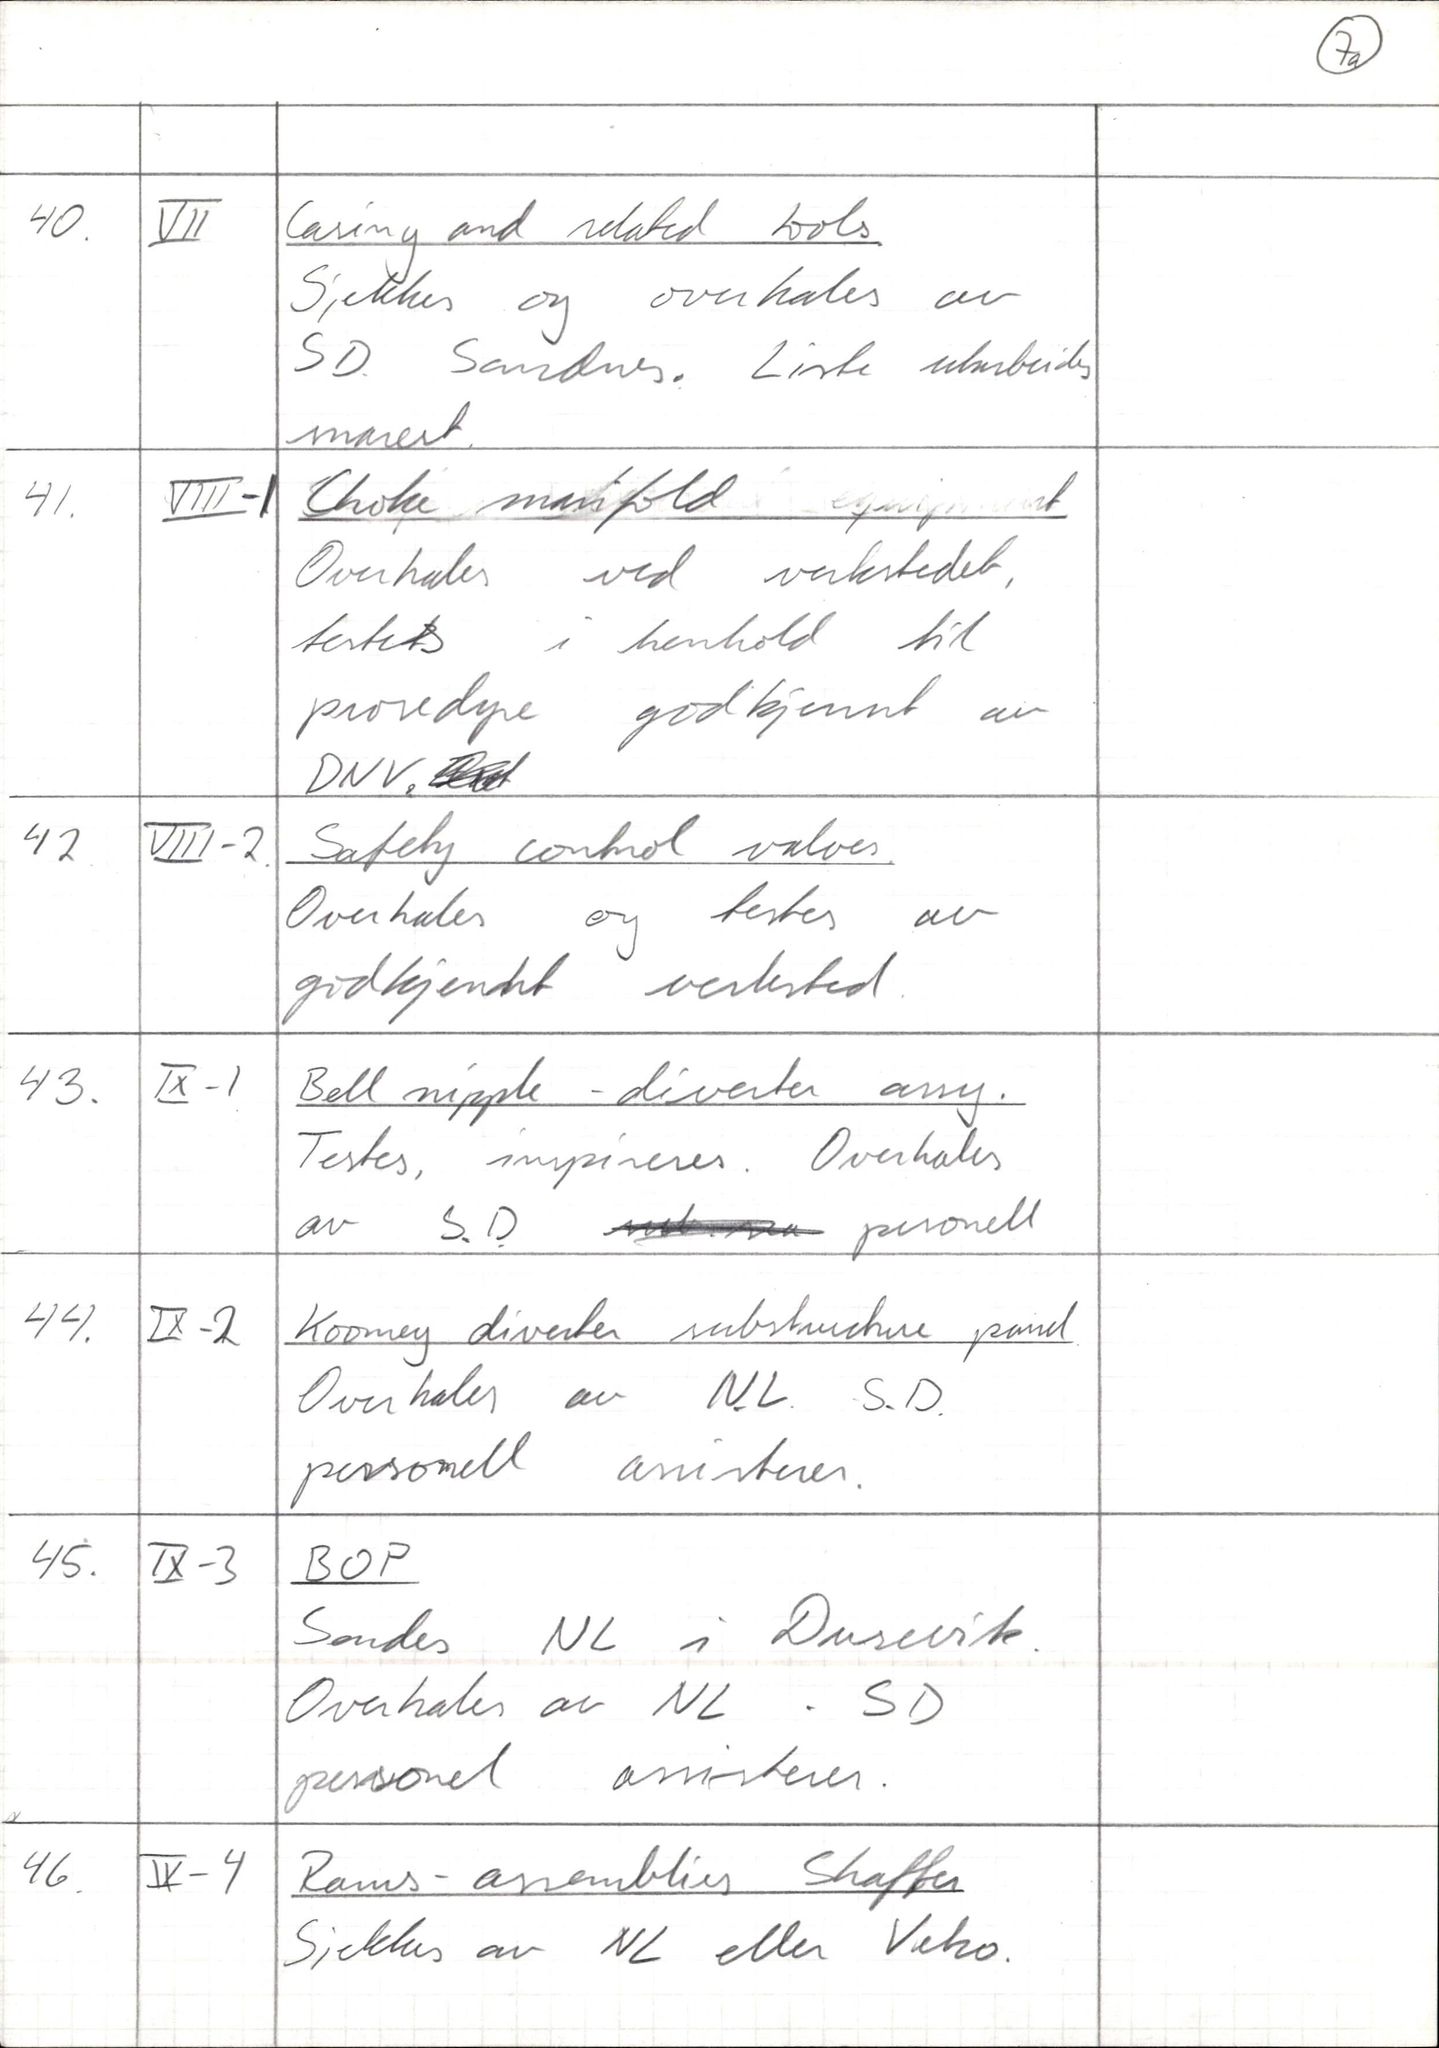 7a
40. VII Casing and related tools
Sjekkes og overhales av
S.D. Sandnes. Liste utarbeides
snarest.
41. VIII-1 Choke manifold equipment
Overhales ved verkstedet,
testes i henhold til
prosedyre godkjennt av
DNV.
42 VIII-2. Safety control valves.
Overhales og testes av
godkjennt verksted.
43. IX-1 Bell nipple - diverter assy.
Testes, inspiseres. Overhales
av S.D. personell
44. IX-2 Koomey diverter substructure panel
Overhales av N.L. S.D.
personell assisterer.
45. IX-3 BOP
Sendes NL i Dusevik.
Overhales av NL. SD
personel assisterer.
46. IX-4 Rams-assemblies Shaffer
Sjekkes av NL eller Veko.